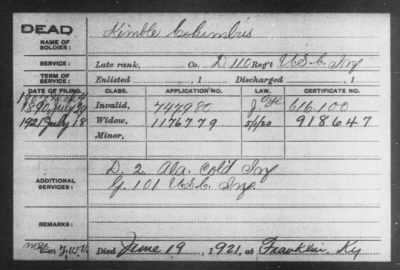 DEAD
NAME OF SOLDIER: Kimble Columbus
SERVICE: Late rank, Co. D 110 Reg't U.S.C. Inf
TERM OF SERVICE: Enlisted , 1 Discharged , 1
DATE OF FILING. CLASS. APPLICATION NO. LAW. CERTIFICATE NO.
1890 July Invalid, 747980 J 616.100
1921 July 18 Widow, 1176779 5/1/20 918647
Minor,
ADDITIONAL SERVICES: D. 2. Ala. Col'd Inf
G. 101 U.S.C. Inf.
REMARKS:
Died June 19, 1921, at Franklin, Ky